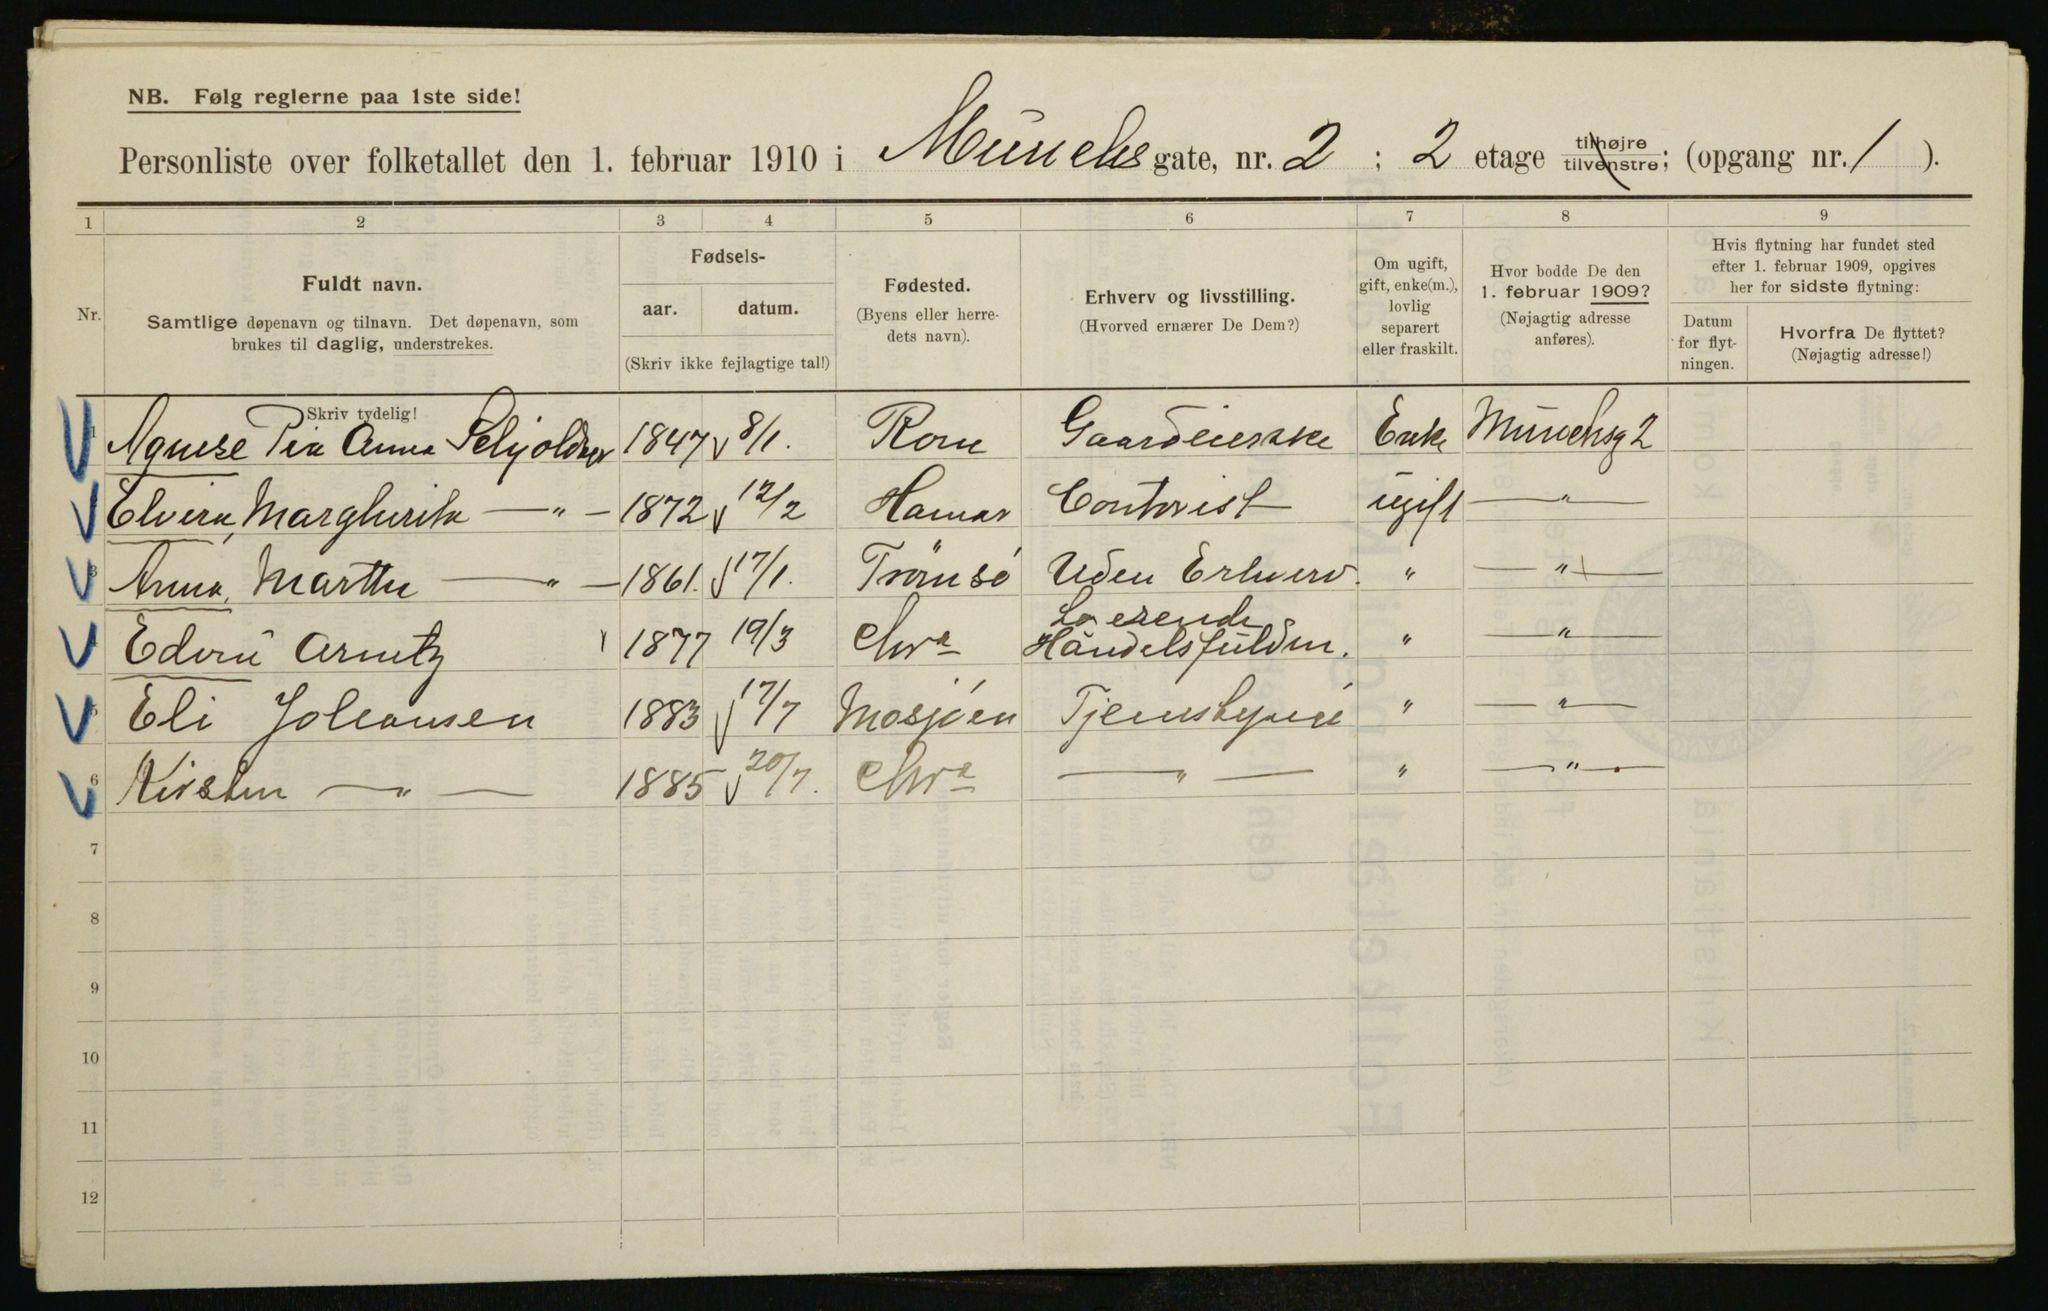 NB. Følg reglerne paa 1ste side!
Personliste over folketallet den 1. februar 1910 i Münchs gate, nr. 2 ; 2 etage tilhøjre tilvenstre; (opgang nr. 1 ).
1 2 3 4 5 6 7 8 9
Nr.
Fuldt navn.
Samtlige døpenavn og tilnavn. Det døpenavn, som
brukes til daglig, understrekes.
Fødsels-
aar. datum.
(Skriv ikke fejlagtige tal!)
Fødested.
(Byens eller herre-
dets navn).
Erhverv og livsstilling.
(Hvorved ernærer De Dem?)
Om ugift,
gift, enke(m.),
lovlig
separert
eller fraskilt.
Hvor bodde De den
1. februar 1909?
(Nøjagtig adresse
anføres).
Hvis flytning har fundet sted
efter 1. februar 1909, opgives
her for sidste flytning:
Datum
for flyt-
ningen.
Hvorfra De flyttet?
(Nøjagtig adresse!)
Skriv tydelig!
1 Agnese Pia Anna 1847 8/1. Rom Gaardeierske Enke Münchsg 2
Elvira, Margherita —„— 1872 12/2 Hamar Contorist ugift —„—
3 Anna, Marthe —„— 1861. 17/1. Tromsö Uden Erhverv. „ —„—
4 Edvin Arnitz 1877 19/3 Chra Handelsfuldm. „ —„—
5 Eli Johansen 1883 17/7 Mosjöen Tjenestepige „ —„—
6 Kirsten —„— 1885 20/7. Chra —„— „ —„—
7
8
9
10
11
12